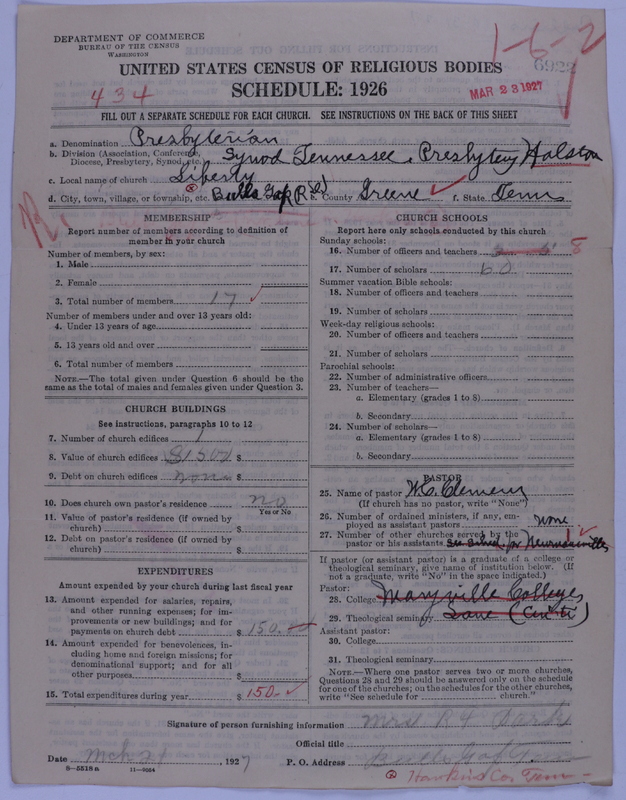 DEPARTMENT OF COMMERCE
BUREAU OF THE CENSUS
WASHINGTON
434
1-6-2
6922
UNITED STATES CENSUS OF RELIGIOUS BODIES
SCHEDULE: 1926
MAR 23 1927
FILL OUT A SEPARATE SCHEDULE FOR EACH CHURCH. SEE INSTRUCTIONS ON THE BACK OF THIS SHEET
a. Denomination Presbyterian
b. Division (Association, Conference, Diocese, Presbytery, Synod, etc.) Synod Tennessee. Presbytery Holston
c. Local name of church Liberty
d. City, town, village, or township, etc. Bulls Gap R e. County Greene f. State Tenn
MEMBERSHIP
Report number of members according to definition of
member in your church
Number of members, by sex:
1. Male
2. Female
3. Total number of members 17
Number of members under and over 13 years old:
4. Under 13 years of age
5. 13 years old and over
6. Total number of members
NOTE.—The total given under Question 6 should be the
same as the total of males and females given under Question 3.
CHURCH BUILDINGS
See instructions, paragraphs 10 to 12
7. Number of church edifices 1
8. Value of church edifices $1500 $
9. Debt on church edifices none $
10. Does church own pastor's residence no
Yes or No
11. Value of pastor's residence (if owned by
church) $
12. Debt on pastor's residence (if owned by
church) $
EXPENDITURES
Amount expended by your church during last fiscal year
13. Amount expended for salaries, repairs,
and other running expenses; for im-
provements or new buildings; and for
payments on church debt $ 150.
14. Amount expended for benevolences, in-
cluding home and foreign missions; for
denominational support; and for all
other purposes $
15. Total expenditures during year $ 150.
CHURCH SCHOOLS
Report here only schools conducted by this church
Sunday schools:
16. Number of officers and teachers 8
17. Number of scholars 60
Summer vacation Bible schools:
18. Number of officers and teachers
19. Number of scholars
Week-day religious schools:
20. Number of officers and teachers
21. Number of scholars
Parochial schools:
22. Number of administrative officers
23. Number of teachers—
a. Elementary (grades 1 to 8)
b. Secondary
24. Number of scholars—
a. Elementary (grades 1 to 8)
b. Secondary
PASTOR
25. Name of pastor W.C. Clemens
(If church has no pastor, write "None")
26. Number of ordained ministers, if any, em-
ployed as assistant pastors none
27. Number of other churches served by the
pastor or his assistants
If pastor (or assistant pastor) is a graduate of a college or
theological seminary, give name of institution below. (If
not a graduate, write "No" in the space indicated.)
Pastor:
28. College Maryville College
29. Theological seminary Lane
Assistant pastor:
30. College
31. Theological seminary
NOTE.—Where one pastor serves two or more churches,
Questions 28 and 29 should be answered only on the schedule
for one of the churches; on the schedules for the other churches,
write "See schedule for church."
Signature of person furnishing information Mrs R
Official title
Date Mch 21 1927 P. O. Address Bulls Gap Tenn
8-5518a 11-9064
Hawkins Co. Tenn